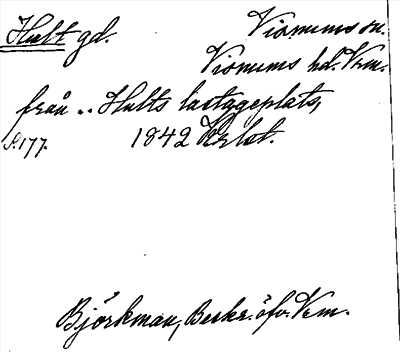 Hult gd. Visnums sn.
Visnums hd. Vrm.
från .. Hults lastageplats,
S. 177. 1842 Krlst.
Björkman, Beskr. öfv. Vrm.